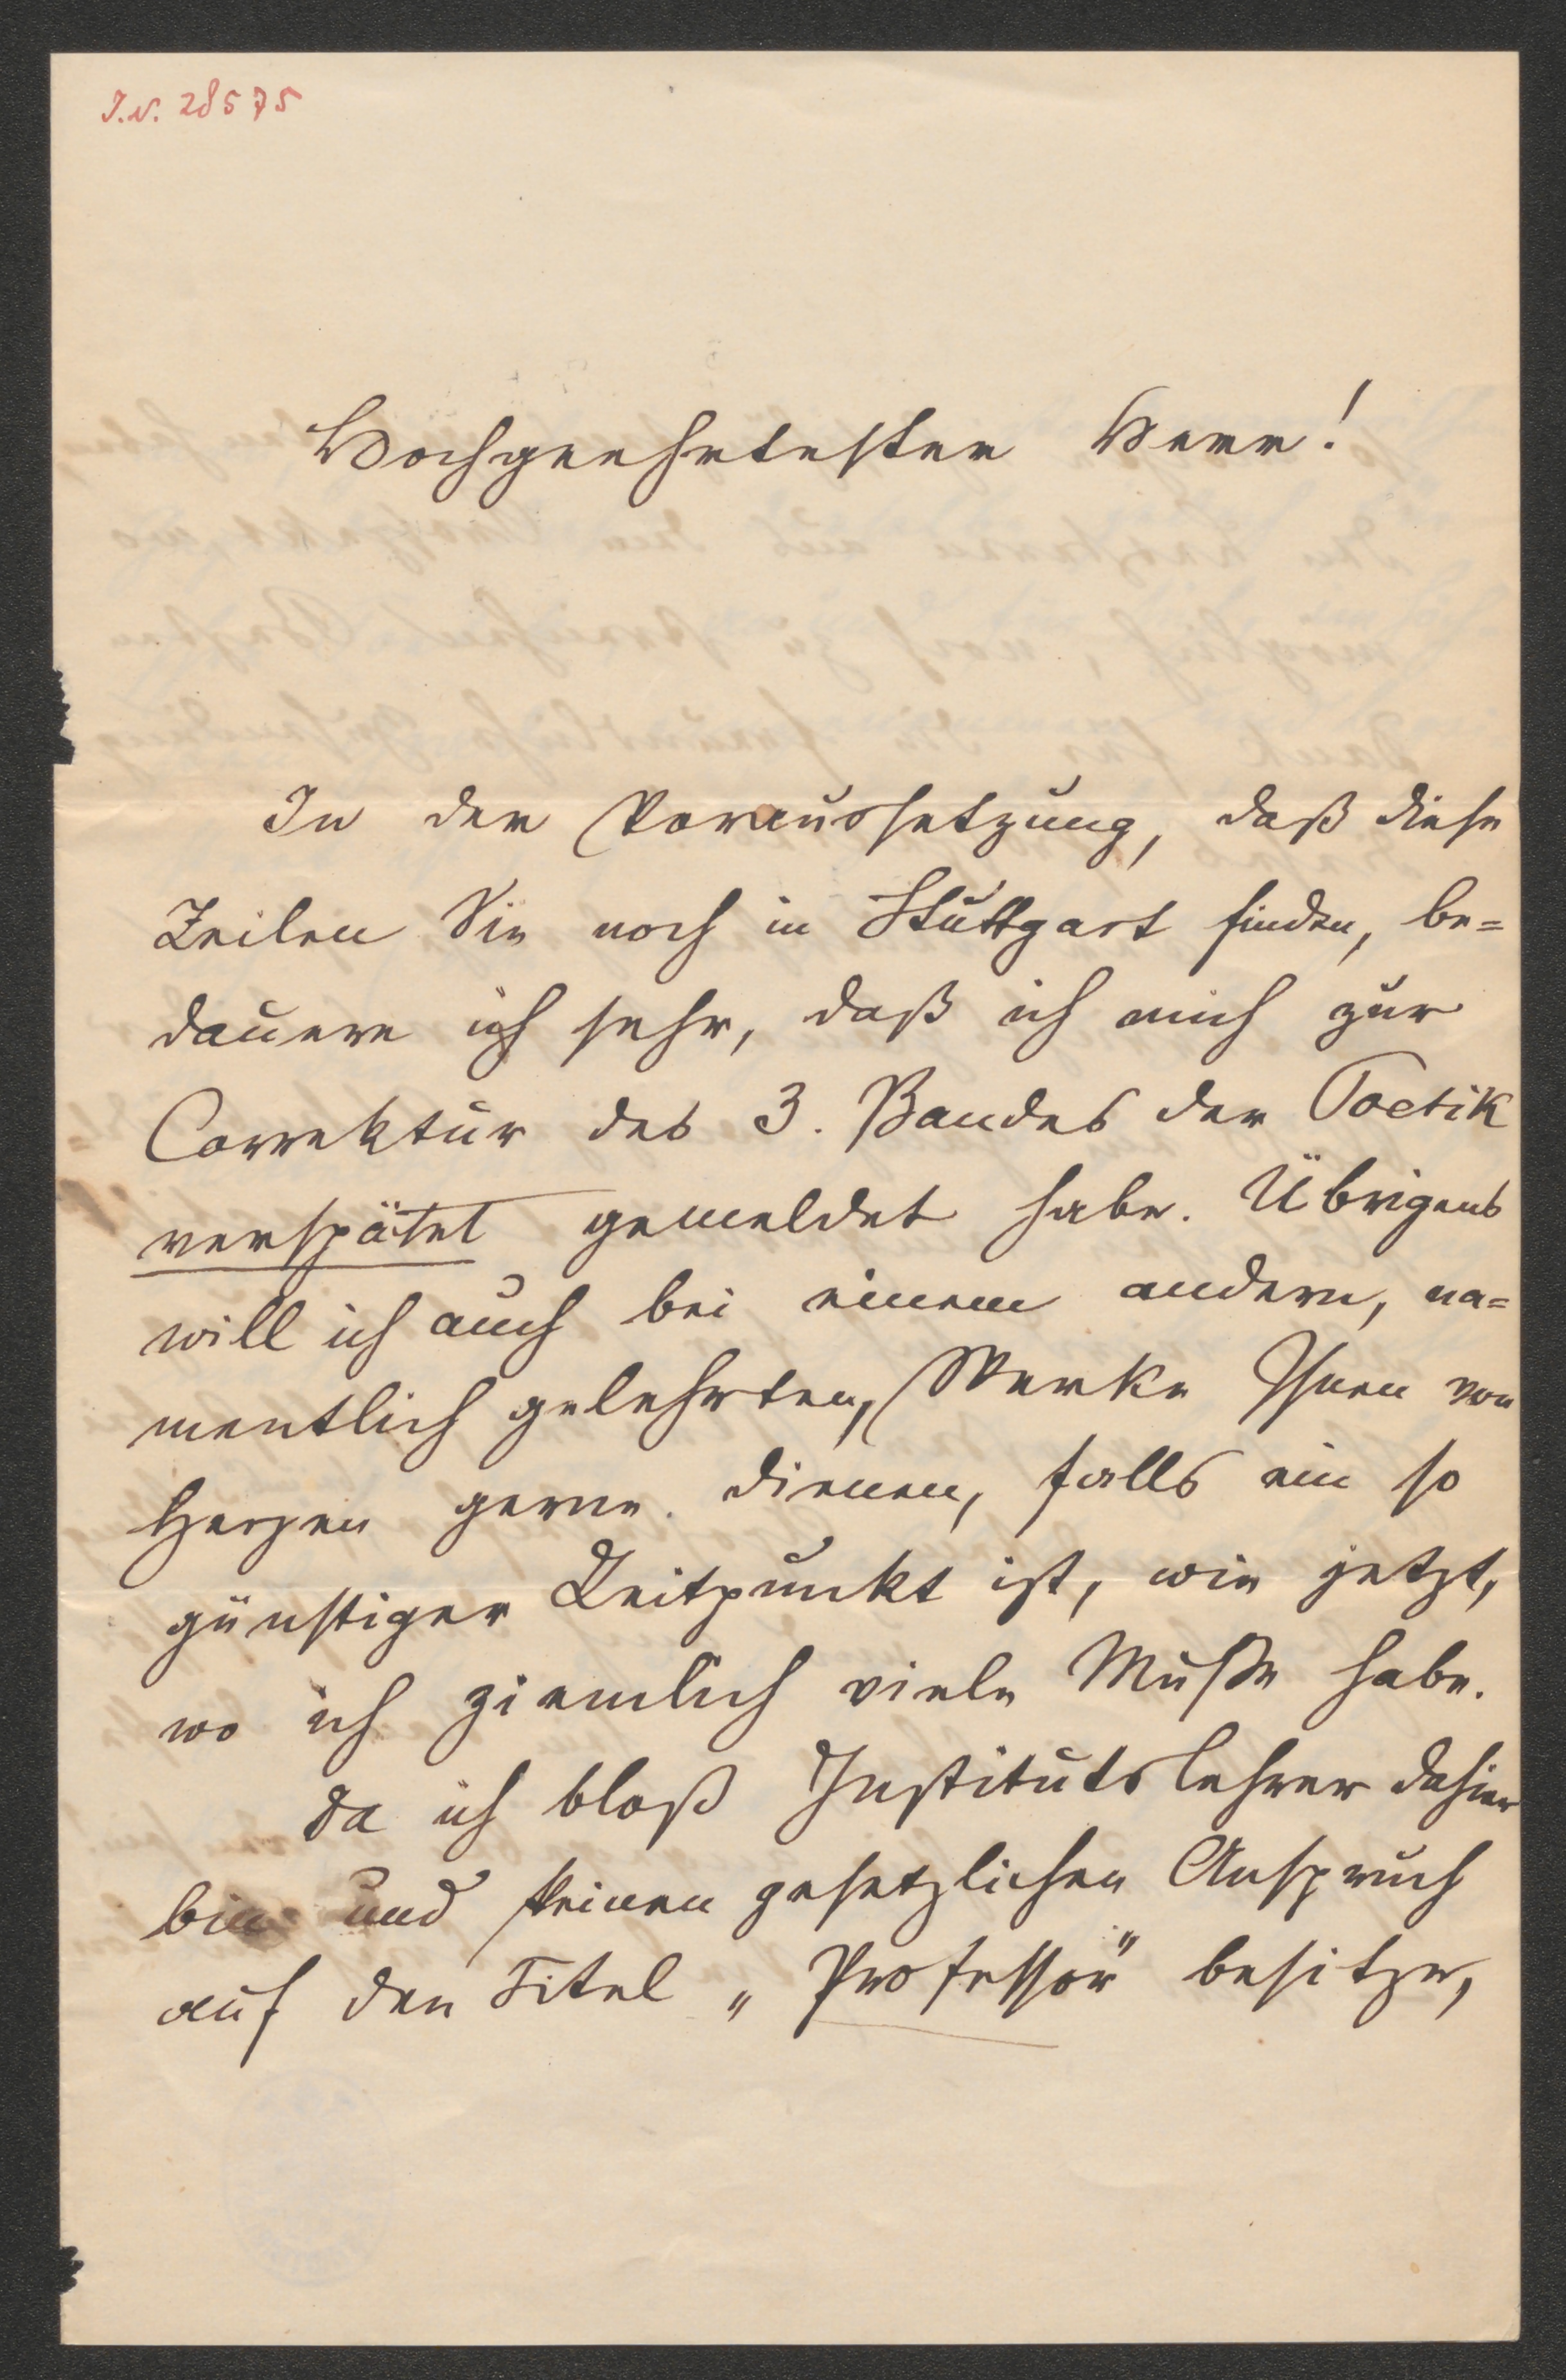 I.N. 28575
Hochgeehrtester Herr!
In der Voraussetzung, daß diese
Zeilen Sie noch in Stuttgart finden, be=
dauere ich sehr, daß ich mich zur
Correktur des 3. Bandes der Poetik
verspätet gemeldet habe. Übrigens
will ich auch bei einem andern, na=
mentlich gelehrten, Werke Ihnen von
Herzen gerne dienen, falls ein so
günstiger Zeitpunkt ist, wie jetzt,
wo ich ziemlich viele Muße habe.
Da ich bloß Institutslehrer dahier
bin und keinen gesetzlichen Anspruch
auf den Titel „Professor" besitze,